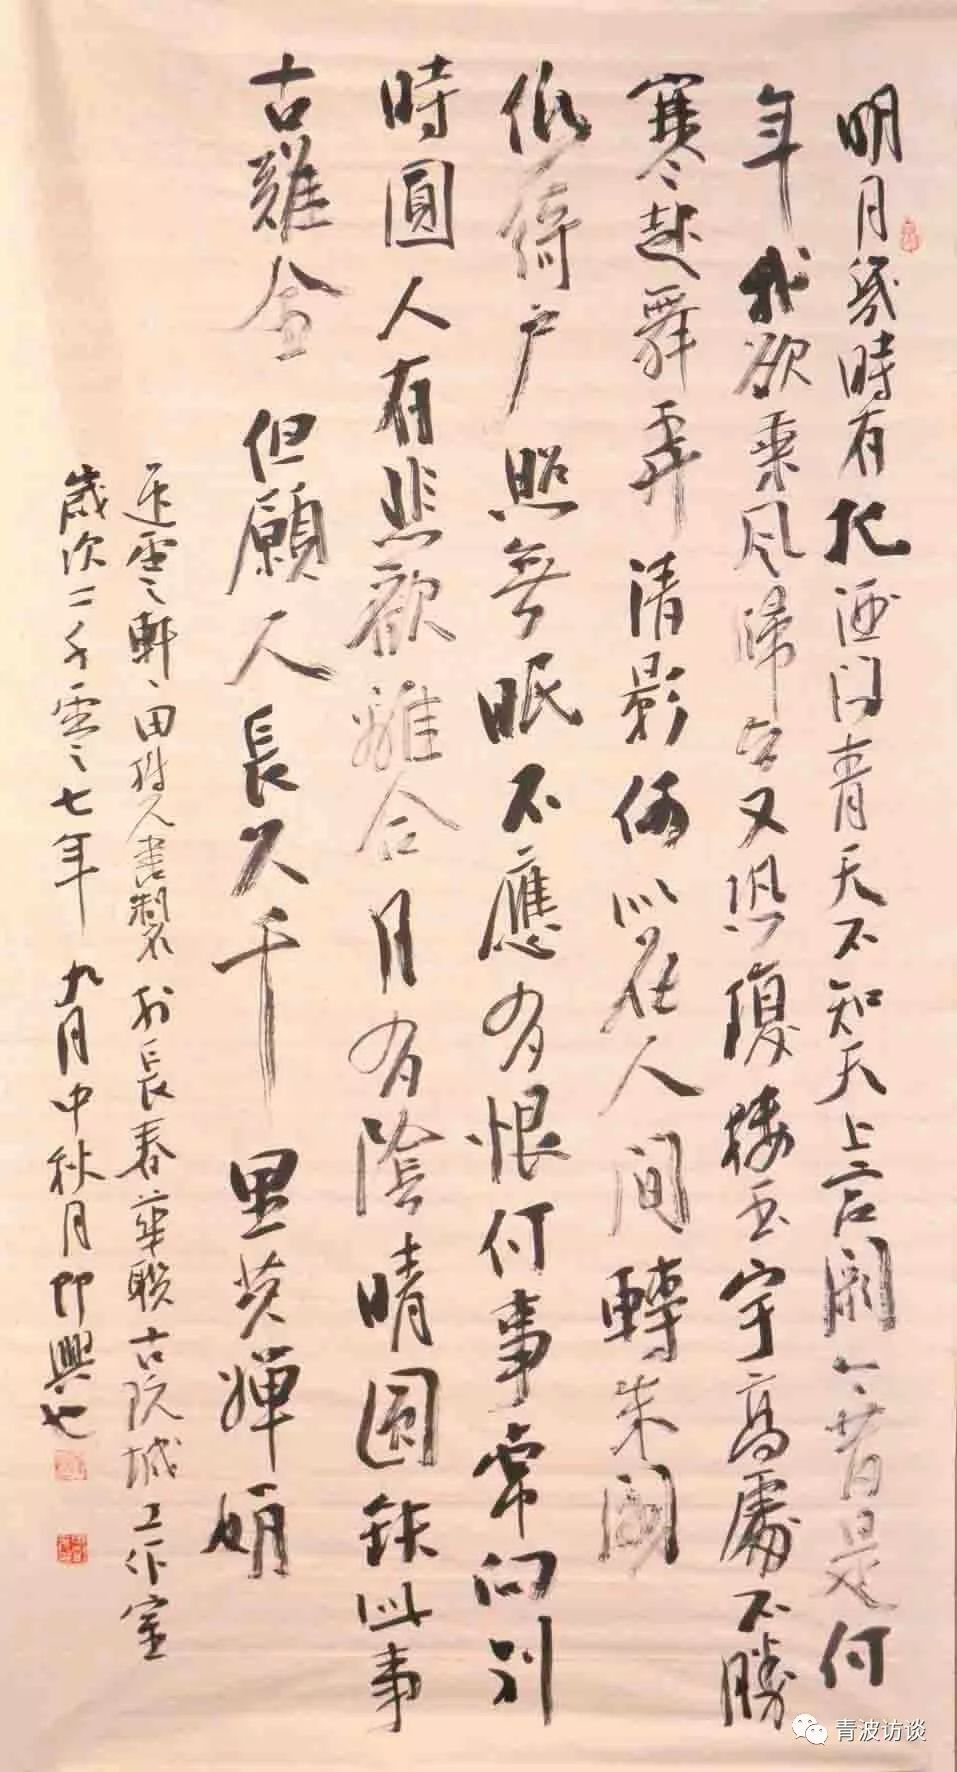 明月幾時有把酒问青天不知天上宫阙今昔是何
年我欲乘风歸去又恐瓊楼玉宇高處不勝
寒起舞弄清影何似在人间轉朱阁
低綺户照無眠不應有恨何事常问别
時圓人有悲歡離合月有陰晴圆缺此事
古難全但願人長久千里共嬋娟
軒田書製於長春華联古玩城工作室
歲次二千零零七年九月中秋月即興也
青波访谈